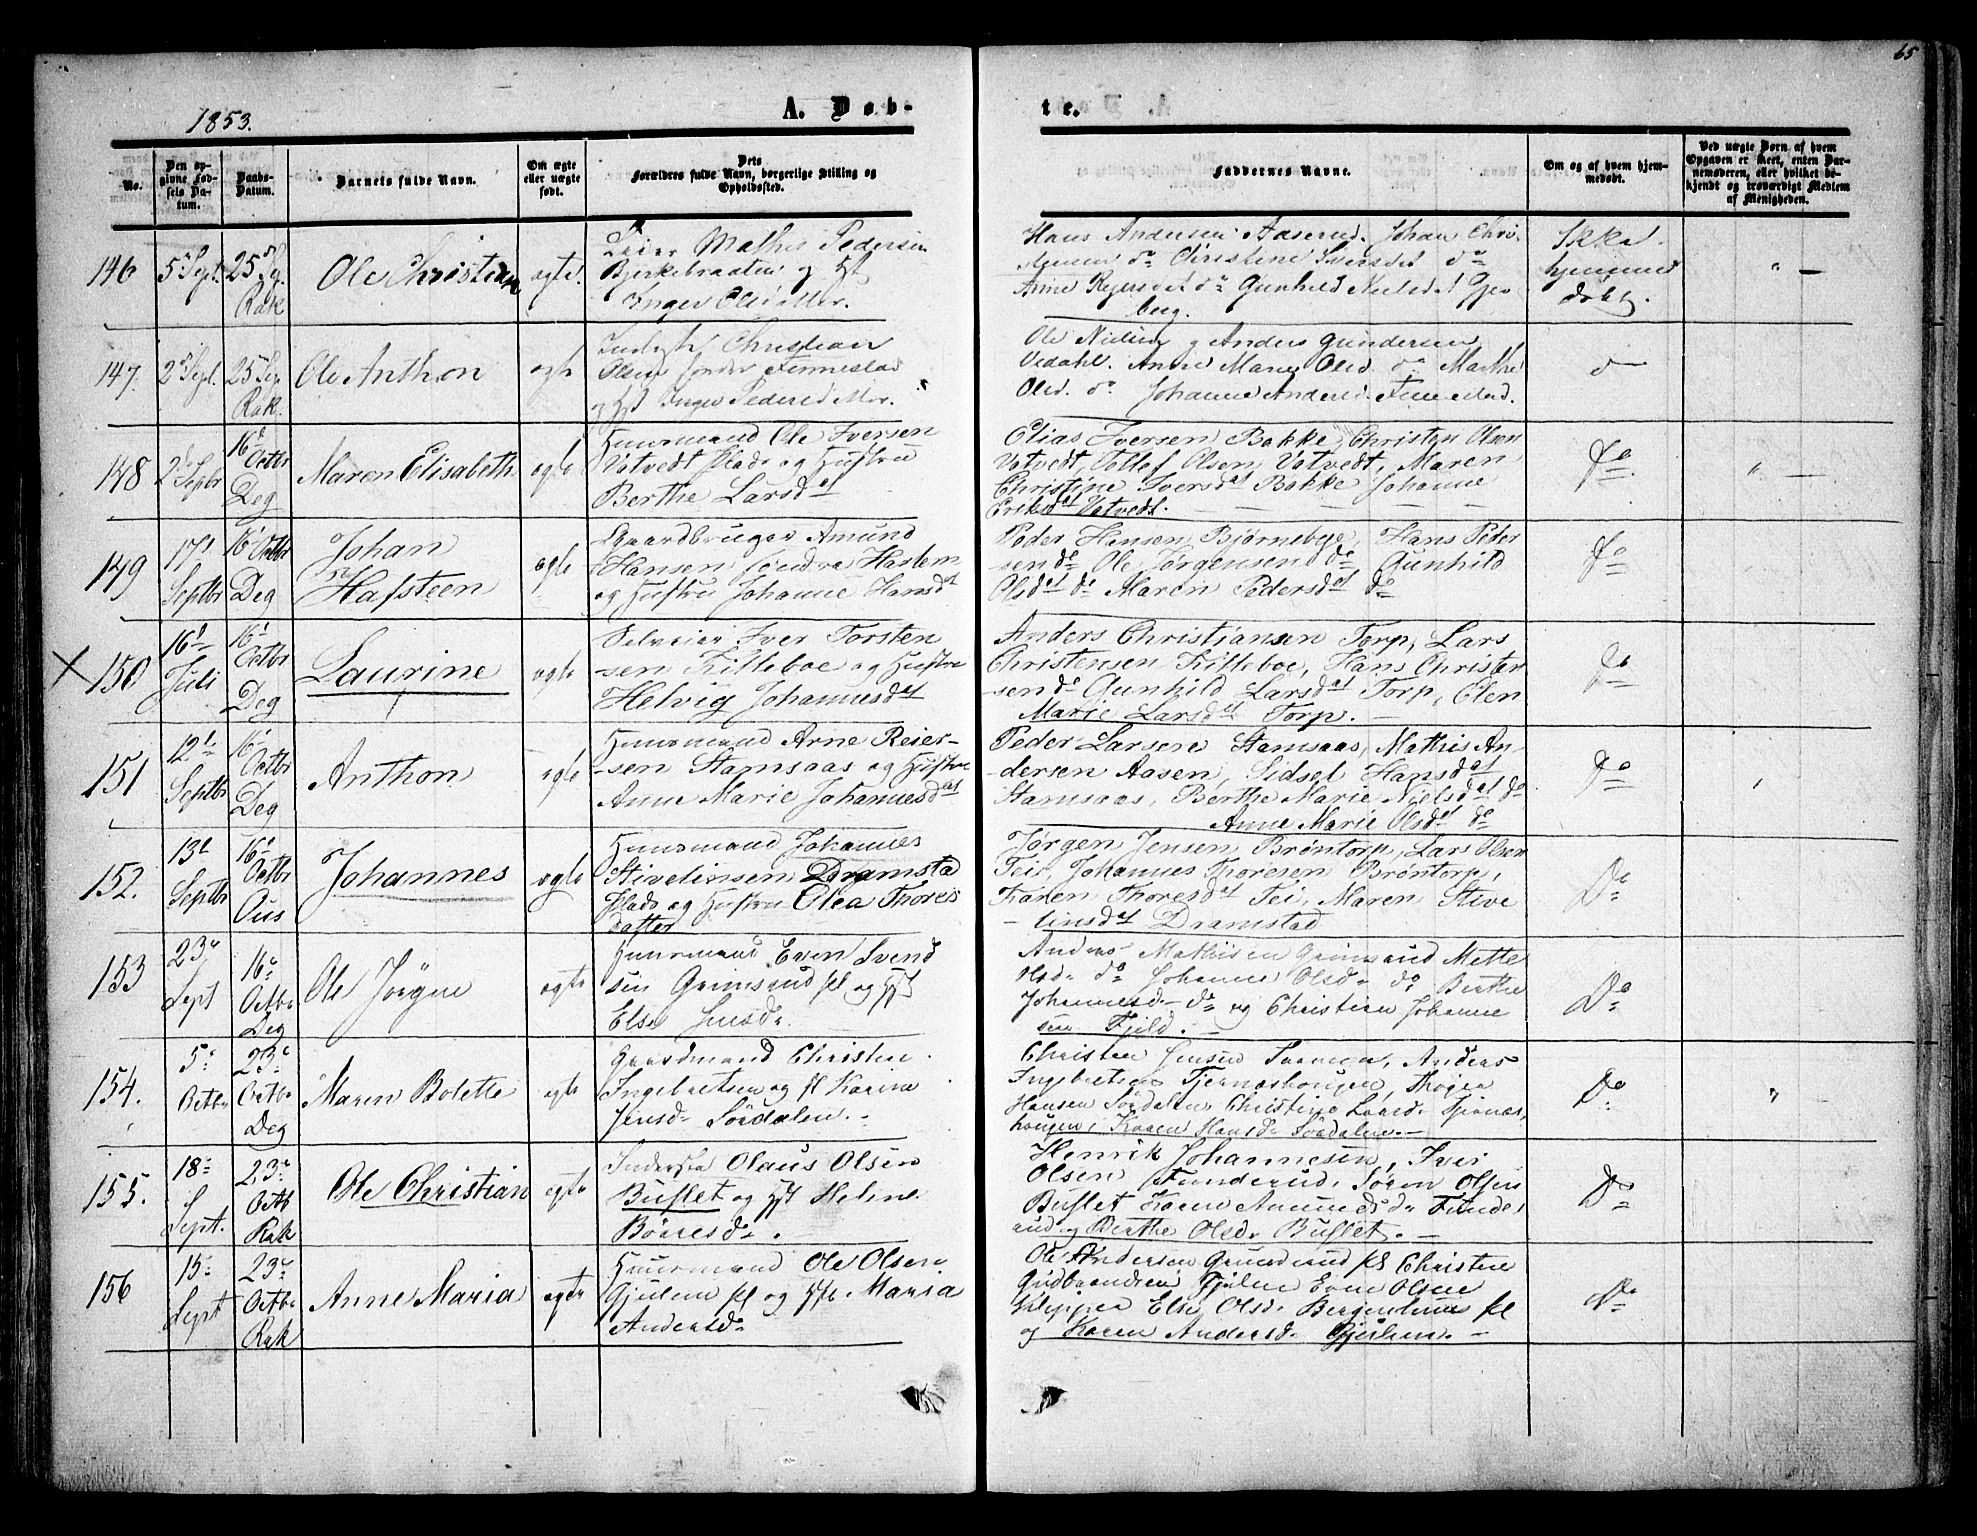 65
1853.
A. Døb-
te.
No.
Den op-
givne Fød-
sels Da-
tum.
Daabs-
Datum.
Barnets fulde Navn.
Om ægte
eller uægte
født.
Dets
Forældres fulde Navn, borgerlige Stilling og
Opholdssted.
Faddernes Navne.
Om og af hvem hjem-
medøbt.
Ved uægte Børn af hvem
Opgaven er skeet, enten Bar-
nemoderen, eller hvilket be-
kjendt og troværdigt Medlem
af Menigheden.
146
5 Sept.
25 Sep
Rak
Ole Christian
ægte.
Leier Mathis Pedersen
Bjerkebraaten og Hst
Inger Olsdatter.
Hans Andersen Aaserud. Johan Chri-
stensen do Christine Iversdat do
Anne Reiersdat do Gunhild Nielsd.
berg.
Ikke
hjemme
døbt.
147.
2 Sept.
25 Sep
Rak.
Ole Anthon
ægte
Christian
Olsen søndre Finnestad
og Hst Inger Pedersd
Ole Nielsen og Anders Gundersen
Vedahl. Anne Marie Olsd. do Marthe
Olsd. do Johanne Andersd. Finnestad.
148
2 Septbr
16 Octbr
Deg
Maren Elisabeth
ægte
Huusmand Ole Iversen
Vatvedt Plads og Hustru
Berthe Larsdat
Elias Iversen Bakke, Christen Olsen
Vatvedt, Tollef Olsen Vatvedt, Maren
Christine Iversdat Bakke Johanne
Eriksdat Vatvedt.
Do
149
17
Septbr
16 Octbr
Deg
Johan
Hafsteen
ægte
Gaardbruger Amund
Hansen søndre Haslem
og Hustru Johanne Hansdat
Peder Hansen Bjørnebye, Hans Peder
sen do Ole Jørgensen do, Gunhild
Olsdat do Maren Pedersdat do
Do
X 150
16
Juli
16
Octbr
Deg
Laurine
ægte
Selveier Iver Torsten
sen Killeboe og Hustru
Helvig Johannesdat
Anders Christiansen Torp, Lars
Christensen Killeboe, Hans Christen
sen do Gunhild Larsdat Torp, Elen
Marie Larsdat Torp.
Do
151
12
Septbr
16
Octbr
Deg
Anthon
ægte
Huusmand Arne Reier-
sen Stamsaas og Hustru
Anne Marie Johannesdat
Peder Larsen Stamsaas, Mathis An-
dersen Aasen, Sidsel Hansdat
Stamsaas, Berthe Marie Nielsdat do
Anne Marie Olsdat do
Do
152.
13
Septbr
16
Octbr
Ous
Johannes
ægte
Huusmand Johannes
Stivelinsen Dramstad
Plads og Hustru Olea Thores
datter
Jørgen Jensen Brøntorp, Lars Olsen
Tei, Johannes Thoresen Brøntorp,
Karen Thoresdat Tei, Maren Stive
linsdat Dramstad
Do
153
23
Sept
16
Octbr
Deg
Ole Jørgen
ægte
Huusmand Even Svend
sen Grimsrud pl og Hst
Else Jensd.
Anders Mathisen Grimsrud Mette
Olsd. do Johanne Olsd. do Berthe
Johannesd. do og Christian Johanne
sen Fjeld.
Do
154.
5
Octbr
23
Octbr
Deg
Maren Bolette
ægte
Gaardmand Christen
Ingebretsen og Karine
Jensd. Sørdalen.
Christen Jensen Anders
Ingebretsen Tjernæshougen,
Hansen Sørdalen Christine Tjernæs-
hougen, Karen Hansd. Sørdalen.
Do
155.
18
Sept.
23
Octb
Rak
Ole Christian
ægte
Inderste Olaus Olsen
Buflet og Hst Heline
Børresd.
Henrik Johannesen, Iver
Olsen Funderud, Søren Olsen
Buflet Karen Amundsd. Funde-
rud og Berthe Olsd. Buflet.
Do
156
15
Sept
23
Octbr
Rak
Anne Maria
ægte
Huusmand Ole Olsen
Gjulem pl og Hst Maria
Andersd.
Ole Andersen Grimsrud pl Christen
Gudbrandsen Even Olsen
Else Olsd. pl
og Karen Andersd.
Do